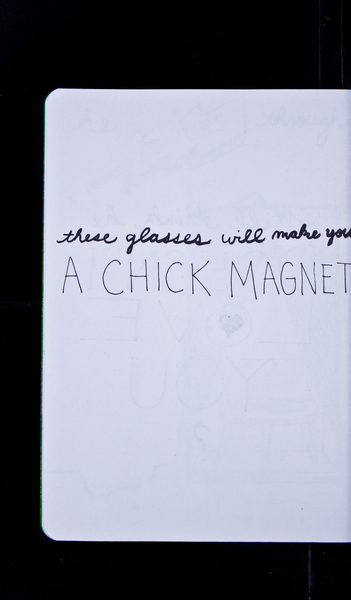 these glasses will make you
A CHICK MAGNET